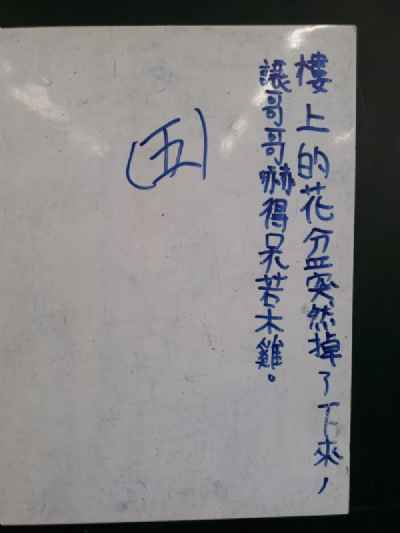 樓上的花盆突然掉了下來，
讓哥哥嚇得呆若木雞。
(五)